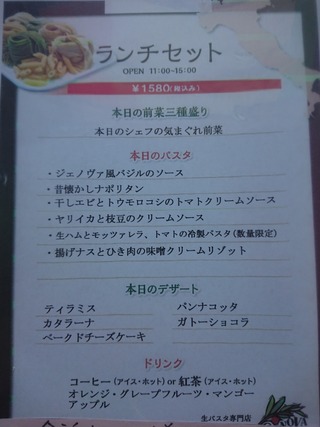 ランチセット
OPEN 11:00~15:00
￥1580(税込み)
本日の前菜三種盛り
本日のシェフの気まぐれ前菜
本日のパスタ
・ジェノヴァ風バジルのソース
・昔懐かしナポリタン
・干しエビとトウモロコシのトマトクリームソース
・ヤリイカと枝豆のクリームソース
・生ハムとモッツァレラ、トマトの冷製パスタ(数量限定)
・揚げナスとひき肉の味噌クリームリゾット
本日のデザート
ティラミス パンナコッタ
カタラーナ ガトーショコラ
ベークドチーズケーキ
ドリンク
コーヒー(アイス・ホット) or 紅茶(アイス・ホット)
オレンジ・グレープフルーツ・マンゴー
アップル
生パスタ専門店